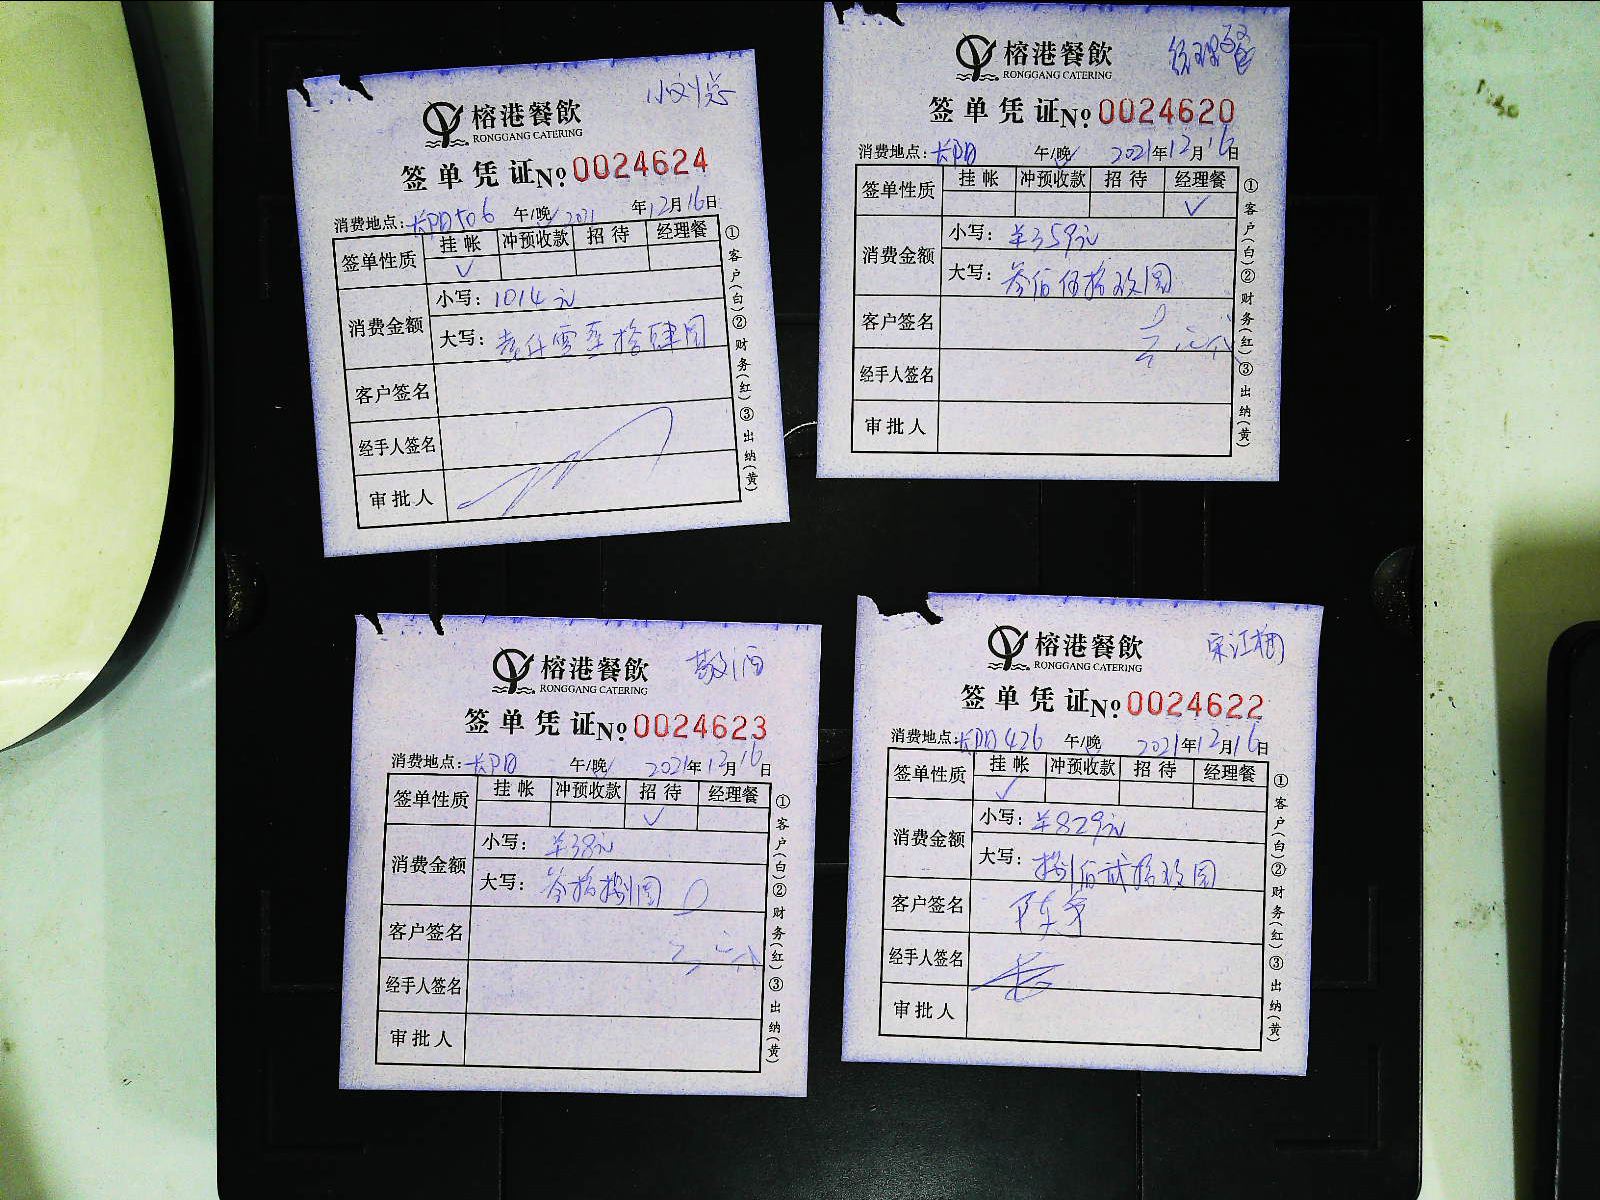 小刘总
榕港餐飲
RONGGANG CATERING
签单凭证№ 0024624
消费地点: 长阳506 午/晚 2021 年12月16日
签单性质 挂帐 冲预收款 招待 经理餐
✓
消费金额 小写: 1014元
大写: 壹仟零壹拾肆圆
客户签名
经手人签名
审批人
①客户(白)②财务(红)③出纳(黄)
经理餐
榕港餐飲
RONGGANG CATERING
签单凭证№ 0024620
消费地点: 长阳 午/晚 2021年12月16日
签单性质 挂帐 冲预收款 招待 经理餐
✓
消费金额 小写: ¥359元
大写: 叁佰伍拾玖圆
客户签名
经手人签名
审批人
①客户(白)②财务(红)③出纳(黄)
敬酒
榕港餐飲
RONGGANG CATERING
签单凭证№ 0024623
消费地点: 长阳 午/晚 2021年12月16日
签单性质 挂帐 冲预收款 招待 经理餐
✓
消费金额 小写: ¥38元
大写: 叁拾捌圆
客户签名
经手人签名
审批人
①客户(白)②财务(红)③出纳(黄)
宋江梅
榕港餐飲
RONGGANG CATERING
签单凭证№ 0024622
消费地点: 长阳426 午/晚 2021年12月16日
签单性质 挂帐 冲预收款 招待 经理餐
✓
消费金额 小写: ¥829元
大写: 捌佰贰拾玖圆
客户签名
经手人签名
审批人
①客户(白)②财务(红)③出纳(黄)